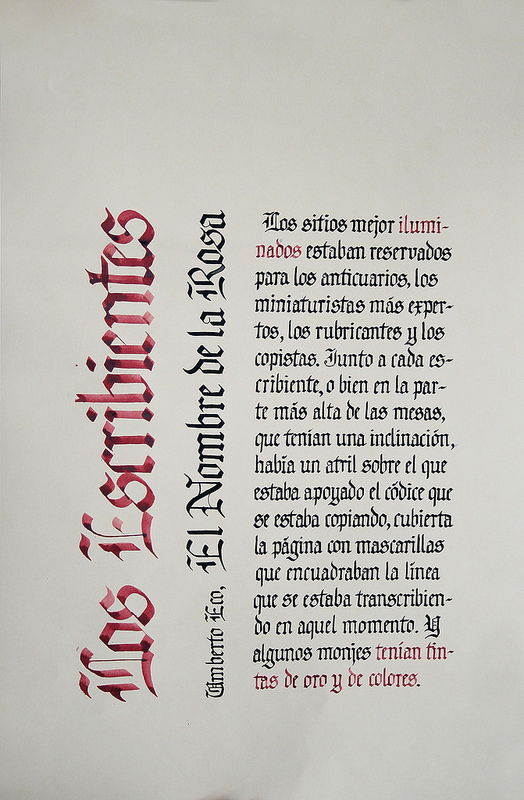 Los Escribientes
Umberto Eco, El Nombre de la Rosa
Los sitios mejor ilumi-
nados estaban reservados
para los anticuarios, los
miniaturistas más exper-
tos, los rubricantes y los
copistas. Junto a cada es-
cribiente, o bien en la par-
te más alta de las mesas,
que tenian una inclinación,
había un atril sobre el que
estaba apoyado el códice que
se estaba copiando, cubierta
la página con mascarillas
que encuadraban la línea
que se estaba transcribien-
do en aquel momento. Y
algunos monjes tenían tin-
tas de oro y de colores.